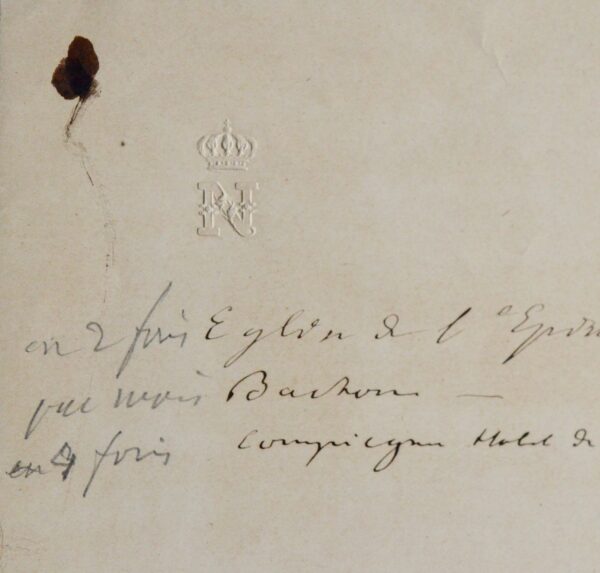 N
en 2 fois Eglise de l'
par mois
en 4 fois Compiegne Hotel de